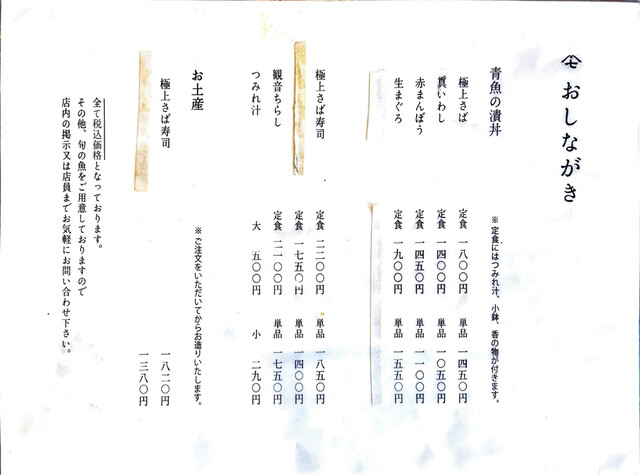 おしながき
青魚の漬丼 ※定食にはつみれ汁、小鉢、香の物が付きます。
極上さば 定食 一八〇〇円 単品 一四五〇円
真いわし 定食 一四〇〇円 単品 一〇五〇円
赤まんぼう 定食 一四五〇円 単品 一一〇〇円
生まぐろ 定食 一九〇〇円 単品 一五五〇円
極上さば寿司 定食 二二〇〇円 単品 一八五〇円
定食 一七五〇円 単品 一四〇〇円
観音ちらし 定食 二一〇〇円 単品 一七五〇円
つみれ汁 大 五〇〇円 小 二九〇円
お土産 ※ご注文をいただいてからお造りいたします。
極上さば寿司 一八二〇円
一三八〇円
全て税込価格となっております。
その他、旬の魚をご用意しておりますので
店内の掲示又は店員までお気軽にお問い合わせ下さい。